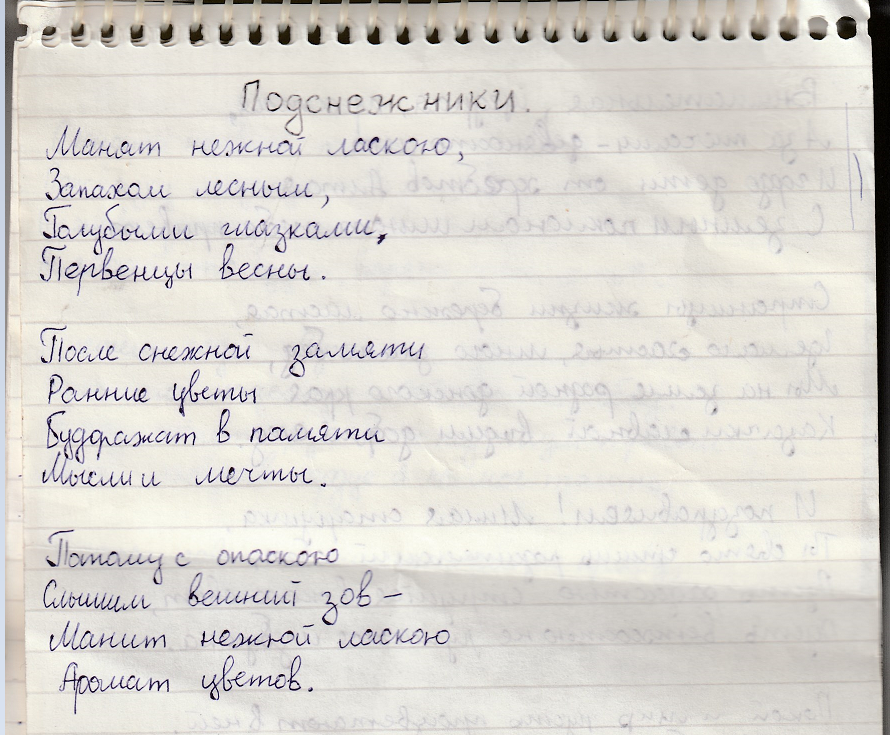 Подснежники.
Манят нежной ласкою,
Запахом лесным,
Голубыми глазками,
Первенцы весны.
После снежной замяти
Ранние цветы
Будоражат в памяти
Мысли и мечты.
Потому с опаскою
Слышим вешний зов –
Манит нежной ласкою
Аромат цветов.